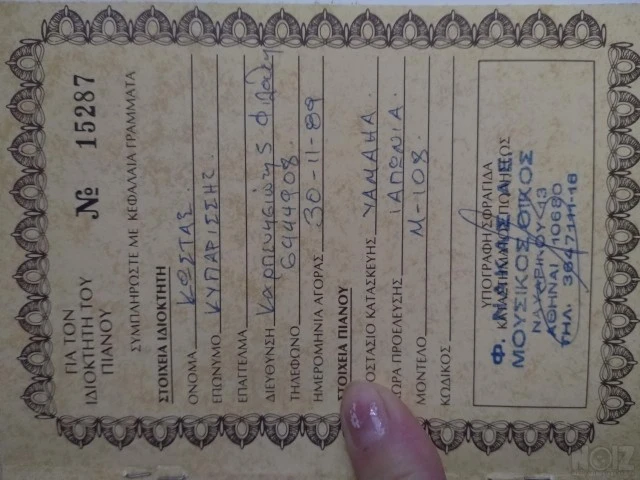 ΓΙΑ ΤΟΝ
ΙΔΙΟΚΤΗΤΗ ΤΟΥ
ΠΙΑΝΟΥ
№ 15287
ΣΥΜΠΛΗΡΩΣΤΕ ΜΕ ΚΕΦΑΛΑΙΑ ΓΡΑΜΜΑΤΑ
ΣΤΟΙΧΕΙΑ ΙΔΙΟΚΤΗΤΗ
ΟΝΟΜΑ ΚΩΣΤΑΣ
ΕΠΩΝΥΜΟ ΚΥΠΑΡΙΣΣΗΣ
ΕΠΑΓΓΕΛΜΑ
ΔΙΕΥΘΥΝΣΗ
ΤΗΛΕΦΩΝΟ 6444908
ΗΜΕΡΟΜΗΝΙΑ ΑΓΟΡΑΣ 30-11-89
ΣΤΟΙΧΕΙΑ ΠΙΑΝΟΥ
ΟΣΤΑΣΙΟ ΚΑΤΑΣΚΕΥΗΣ YAMAHA.
ΩΡΑ ΠΡΟΕΛΕΥΣΗΣ ΙΑΠΩΝΙΑ.
ΜΟΝΤΕΛΟ M-108
ΚΩΔΙΚΟΣ
ΥΠΟΓΡΑΦΗ/ΣΦΡΑΓΙΔΑ
ΚΑΤΑΣΤΗΜΑΤΟΣ ΠΩΛΗΣΕΩΣ
Φ. ΝΑΚΑΣ Α.Ε.
ΜΟΥΣΙΚΟΣ ΟΙΚΟΣ
ΝΑΥΑΡΙΝΟΥ 13
ΑΘΗΝΑΙ 10680
ΤΗΛ. 3647111-16
NOIZ